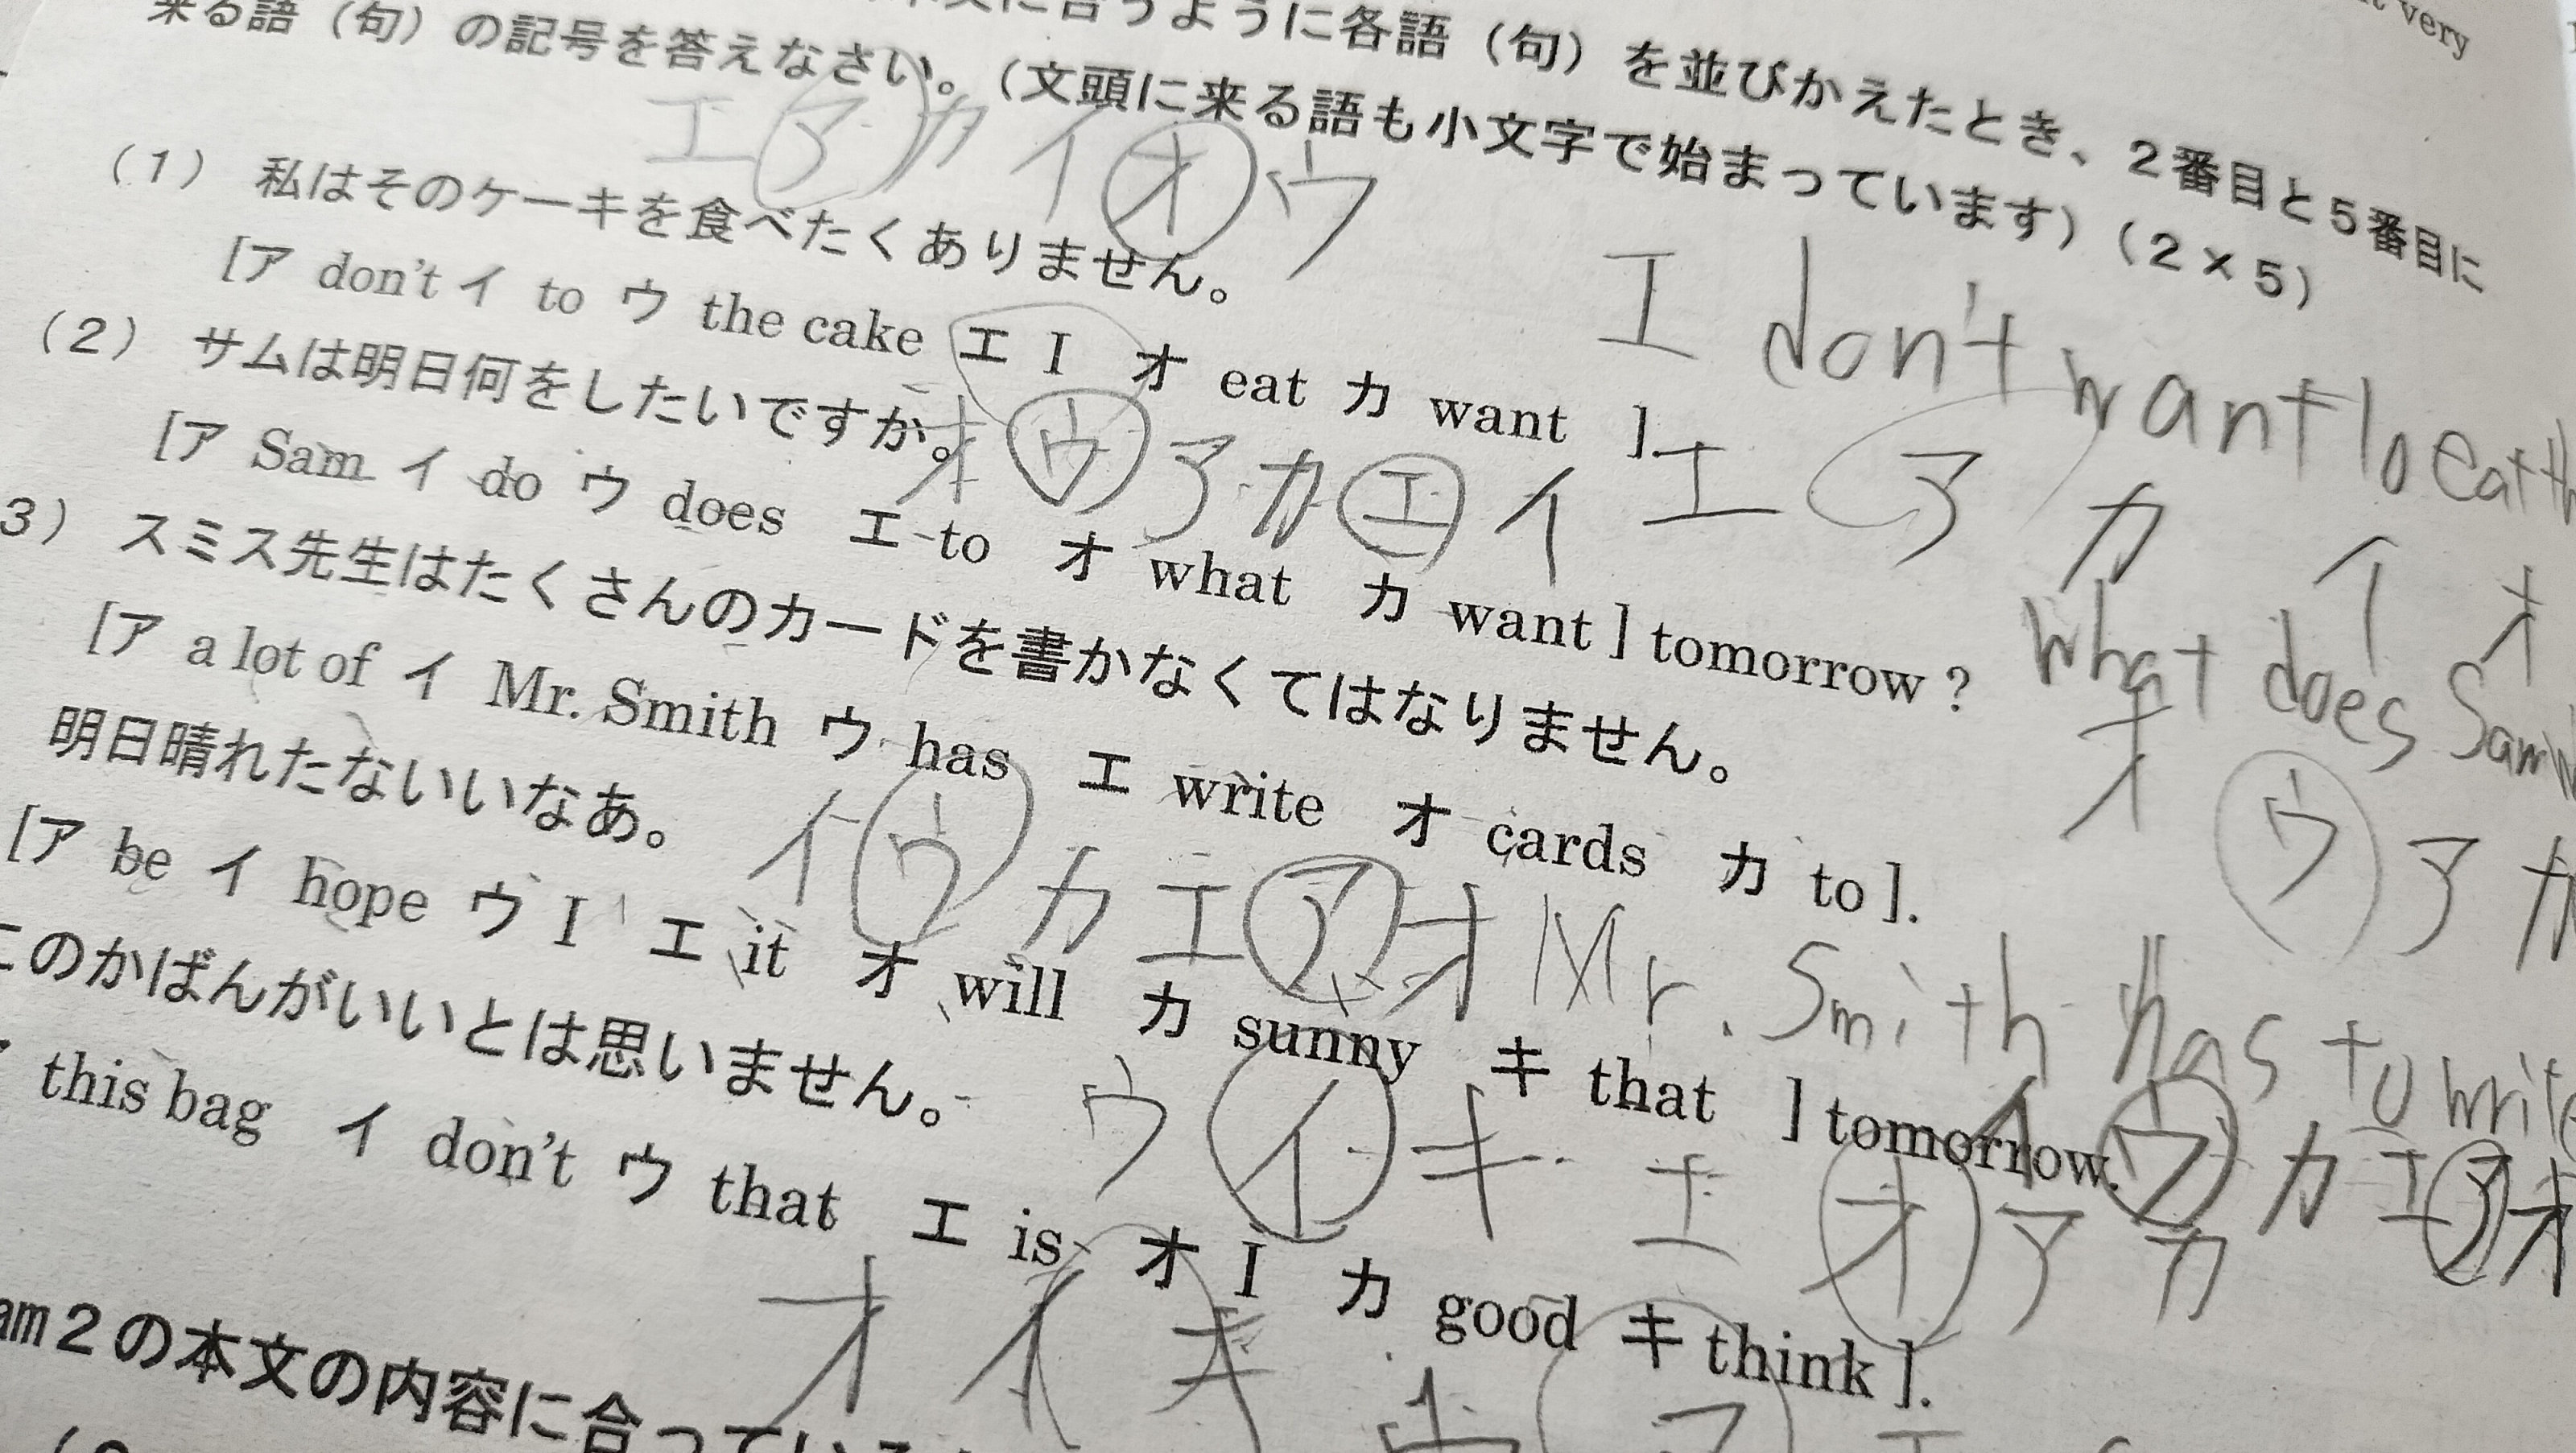 t very
本文に合うように各語（句）を並びかえたとき、2番目と5番目に
来る語（句）の記号を答えなさい。（文頭に来る語も小文字で始まっています）（2×5）
エ ア カ イ オ ウ
（1） 私はそのケーキを食べたくありません。
[ア don't イ to ウ the cake エ I オ eat カ want ].
I don't want to eat th
エ ア カ イ オ
（2） サムは明日何をしたいですか。
オ ウ ア カ エ イ
[ア Sam イ do ウ does エ to オ what カ want ] tomorrow ?
what does Sam w
オ ウ ア カ
3） スミス先生はたくさんのカードを書かなくてはなりません。
[ア a lot of イ Mr. Smith ウ has エ write オ cards カ to ].
イ ウ カ エ ア オ
Mr. Smith has to write
イ ウ カ エ ア オ
明日晴れたないいなあ。
[ア be イ hope ウ I エ it オ will カ sunny キ that ] tomorrow.
ウ イ キ エ オ ア カ
このかばんがいいとは思いません。
this bag イ don't ウ that エ is オ I カ good キ think ].
オ イ キ ウ ア エ
am 2の本文の内容に合っている